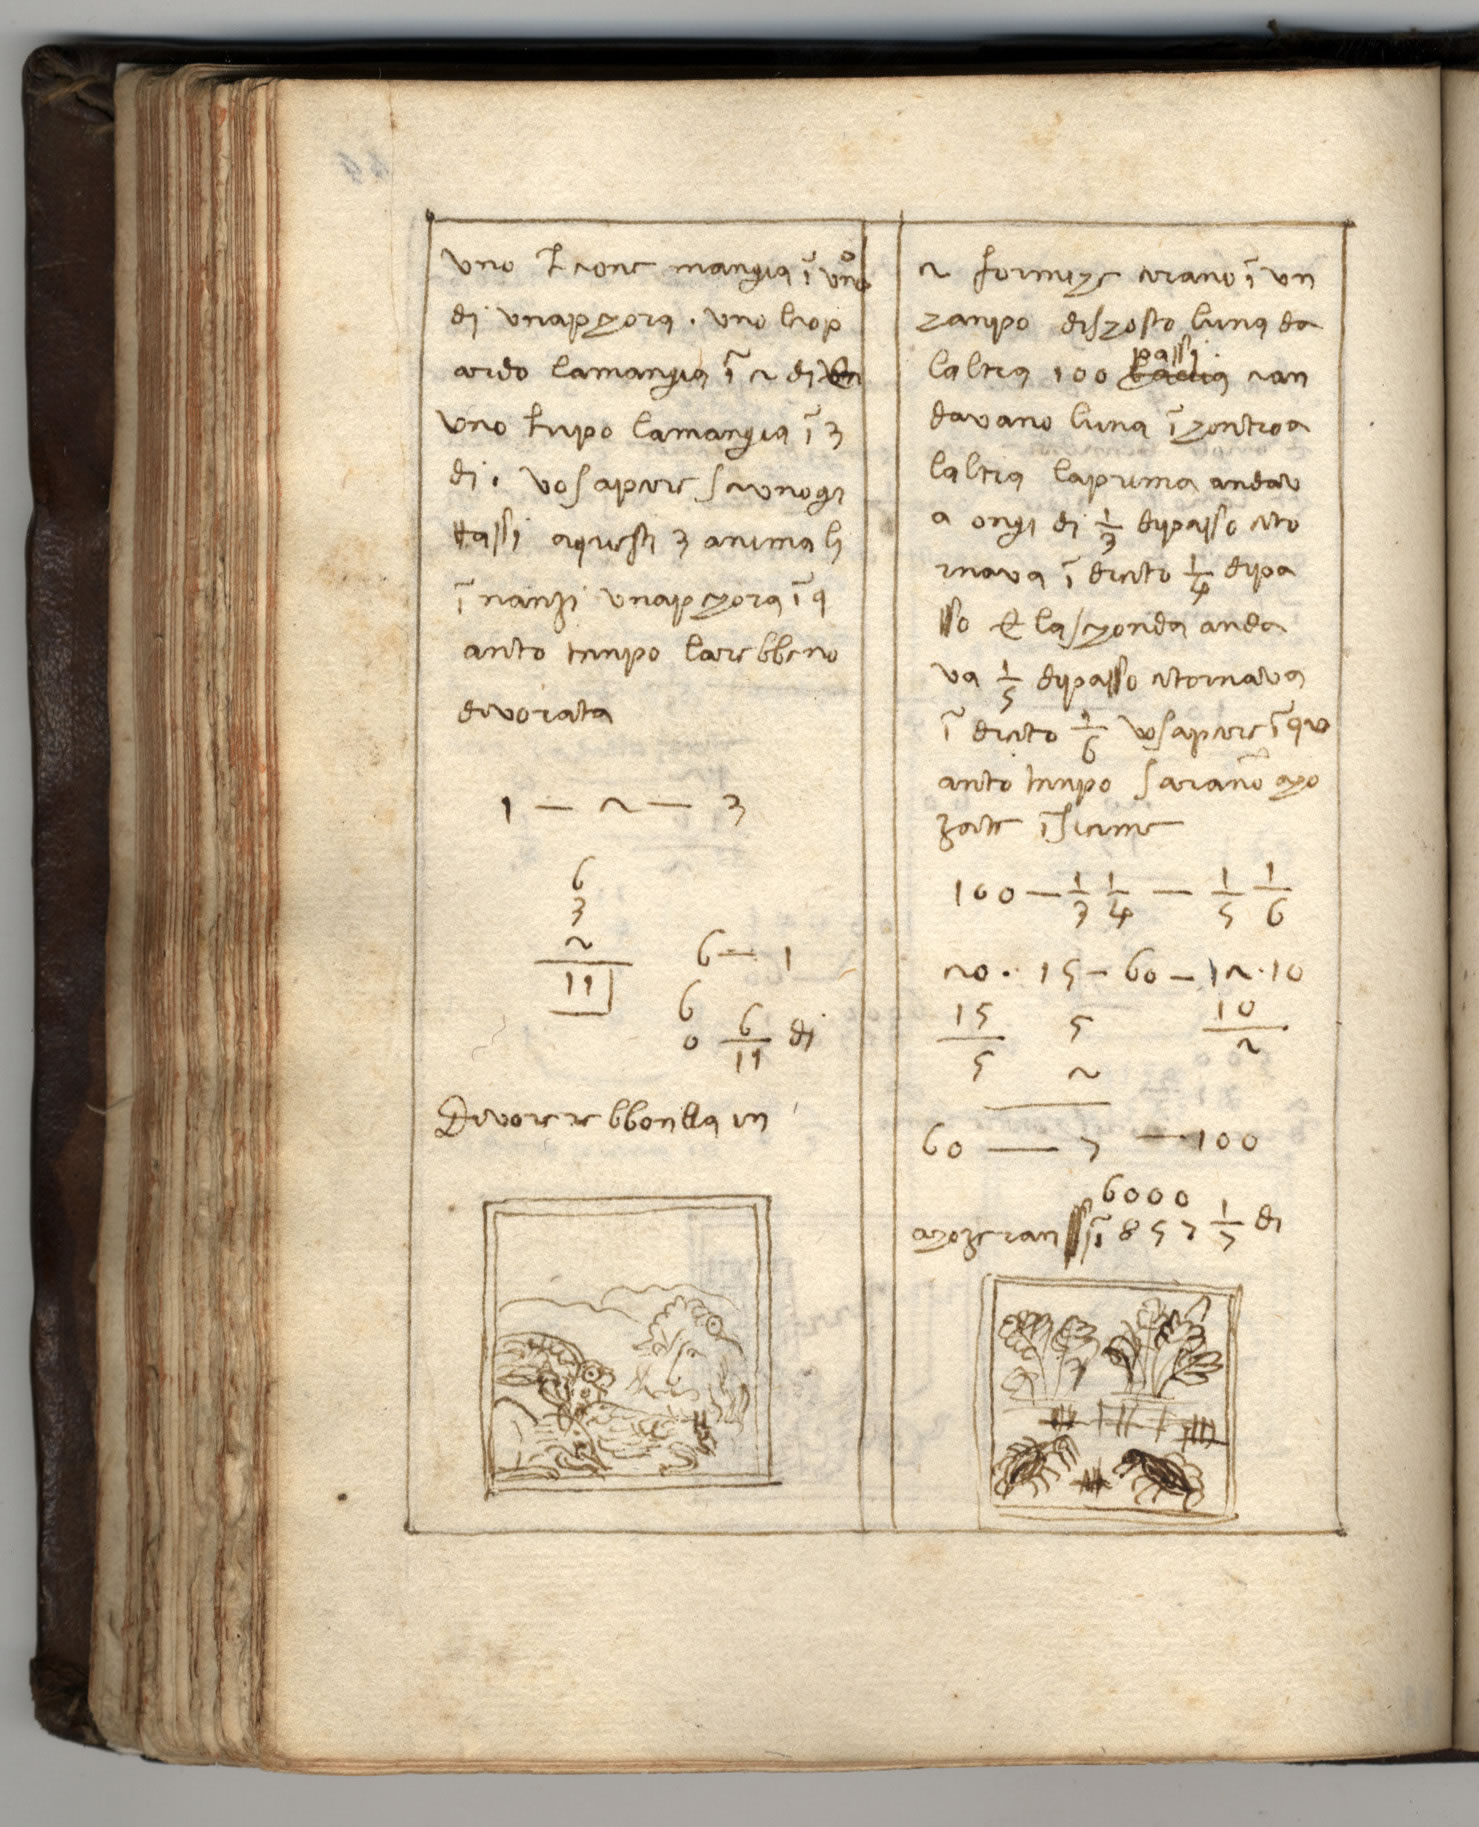 uno leone mangia ī uno
di una pecora . uno leop
ardo la mangia ī 2 di
uno lupo la mangia ī 3
di . vo sapere se uno gi
ttassi a questi 3 animali
ī nanzi una pecora ī q
anto tempo larebbeno
divorata
1 — 2 — 3
6
3
2
11
6 — 1
6
0 6/11 di
Divorerebbonlla in
2 formice erano ī un
canpo discosto luna da
laltra 100 passi e an
davano luna ī contro a
laltra la prima andav
a ogni di 1/3 di passo e to
rnava ī drieto 1/4 di pa
sso e la seconda anda
va 1/5 di passo e tornava
ī drieto 1/6 vo sapere ī qu
anto tempo sarano aco
zate īsieme
100 — 1/3 1/4 — 1/5 1/6
20 . 15 — 60 — 12 . 10
15 5 10
5 2 2
60 — 7 — 100
6000
acozeransi ī 857 1/7 di